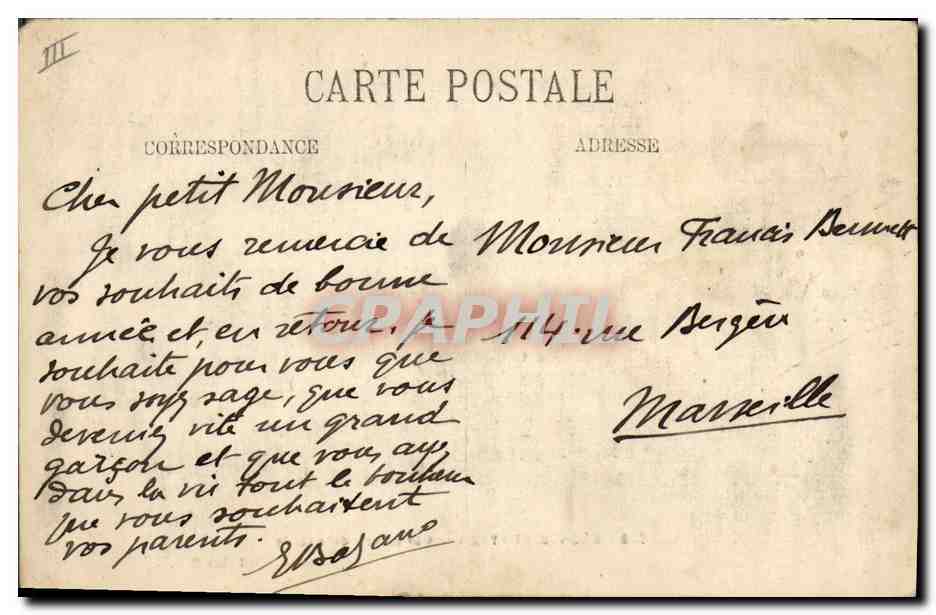 III
CARTE POSTALE
CORRESPONDANCE
ADRESSE
Cher petit Monsieur,
Je vous remercie de
vos souhaits de bonne
année et, en retour, je
souhaite pour vous que
vous soyez sage, que vous
deveniez vite un grand
garçon et que vous ayez
dans la vie tout le bonheur
que vous souhaitent
vos parents.
Monsieur Francis
114 rue Bergère
Marseille
CPAPHIL